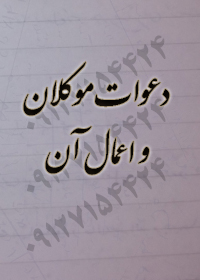 دعوات موکلان
و اعمال آن
۰۹۱۲۷۱۵۴۴۲۴
۰۹۱۲۷۱۵۴۴۲۴
۰۹۱۲۷۱۵۴۴۲۴